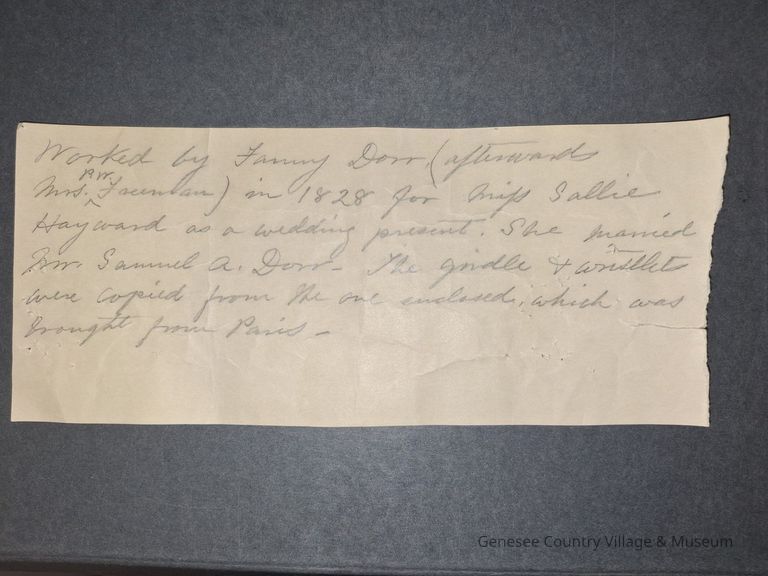 Worked by Fanny Dorr (afterwards
Mrs. P.W. Freeman) in 1828 for Miss Sallie
Hayward as a wedding present. She married
Mr. Samuel A. Dorr - The girdle & wristlets
were copied from the one enclosed, which was
brought from Paris -
Genesee Country Village & Museum